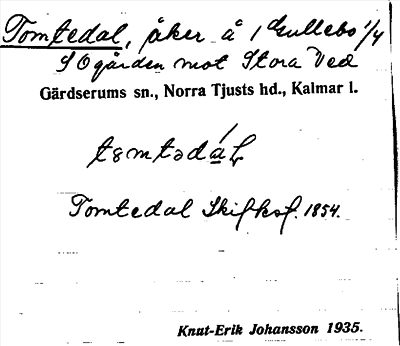 Tomtedal, åker å 1 Gullebo 1/4
S Ogården mot Stora Ved
Gärdserums sn., Norra Tjusts hd., Kalmar l.
Tomtedal Skifksf. 1854.
Knut-Erik Johansson 1935.